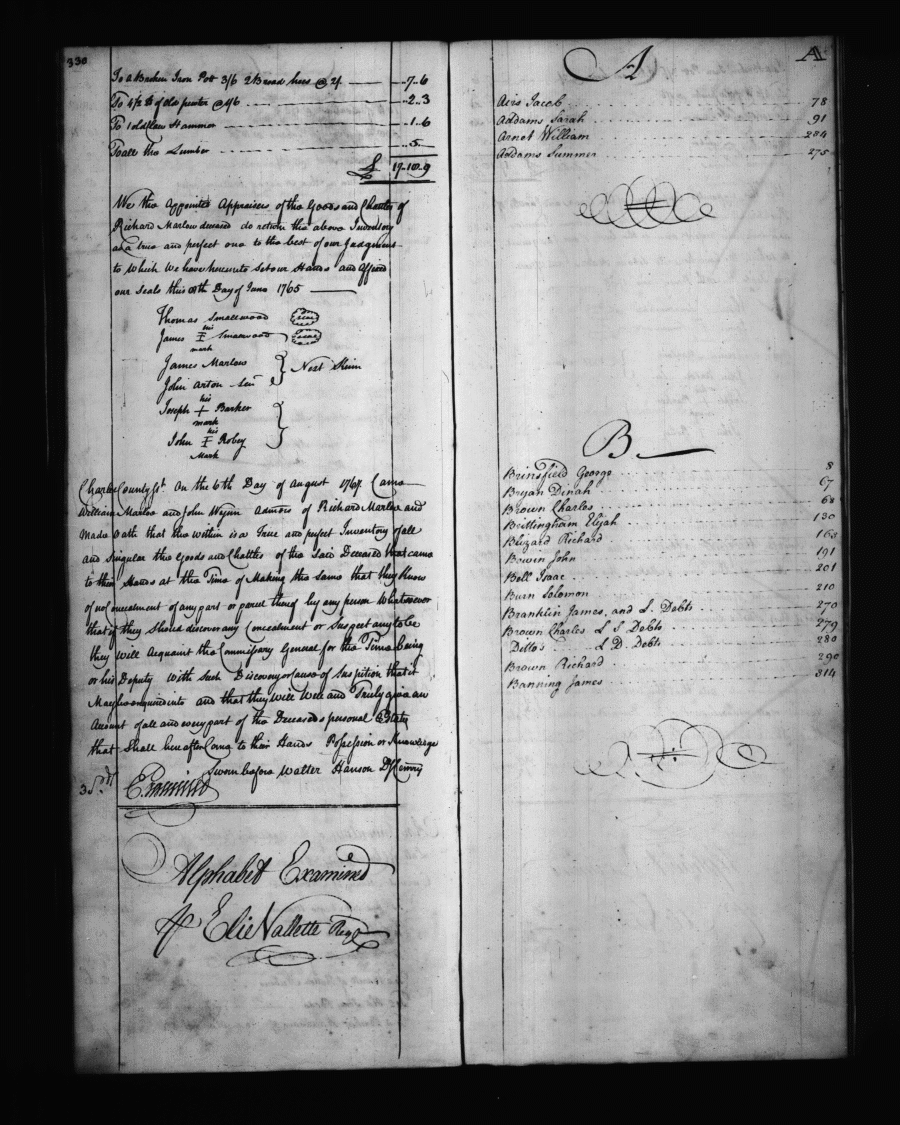 330
To a Broken Iron Pott 3/6 2 Broad hoes @ 2/ ..7..6
To 4/2 lb of old pewter @ 1/6 ..2..3
To 1 old Hammer ..1..6
To all the Lumber ..5..
£ 17..10..9
We the Appointed Appraisers of the Goods and Chattles of
Richard Marlow deceased do return the above Inventory
as a true and perfect one to the best of our Judgment
to which We have hereunto Set our Hands and Affixed
our Seals this Day of June 1765
Thomas Smallwood Seal
his
James I Smallwood Seal
mark
James Marlow
John Arton Senr } Next Skinn
his
Joseph + Barker
mark
his
John I Robey
Mark
Charles County Sct. On the 6th Day of August 1767 Came
William Marlow and John Wynn Admors of Richard Marlow and
Made Oath that the within is a True and perfect Inventory of all
and Singular the Goods and Chattles of the Said Deceased that came
to their Hands at the Time of Making the Same that they know
of no Concealment of any part or parcel thereof by any person Whatsoever
that if they Should discover any Concealment or Suspect any to be
they Will Acquaint the Commissary General for the Time being
or his Deputy with Such Discovery or Cause of Suspition that it
May be enquired into and that they will Well and Truly give an
Account of all and every part of the Deceaseds personal Estate
that Shall hereafter Come to their Hands Possession or Knowledge
Sworn before Walter Hanson Dy Comry
Examined
Alphabet Examined
Elie Vallette Regr
A A
Avis Jacob 78
Addams Sarah 91
Arnet William 284
Addams Summer 275
B
Brinsfield George 8
Bryan Dinah 67
Brown Charles 68
Brittingham Elijah 130
Blizard Richard 163
Bowin John 191
Bell Isaac 201
Burn Solomon 210
Branklin James, and L. Debts 270
Brown Charles L S Debts 279
Ditto's L D. Debts 280
Brown Richard 290
Banning James 314